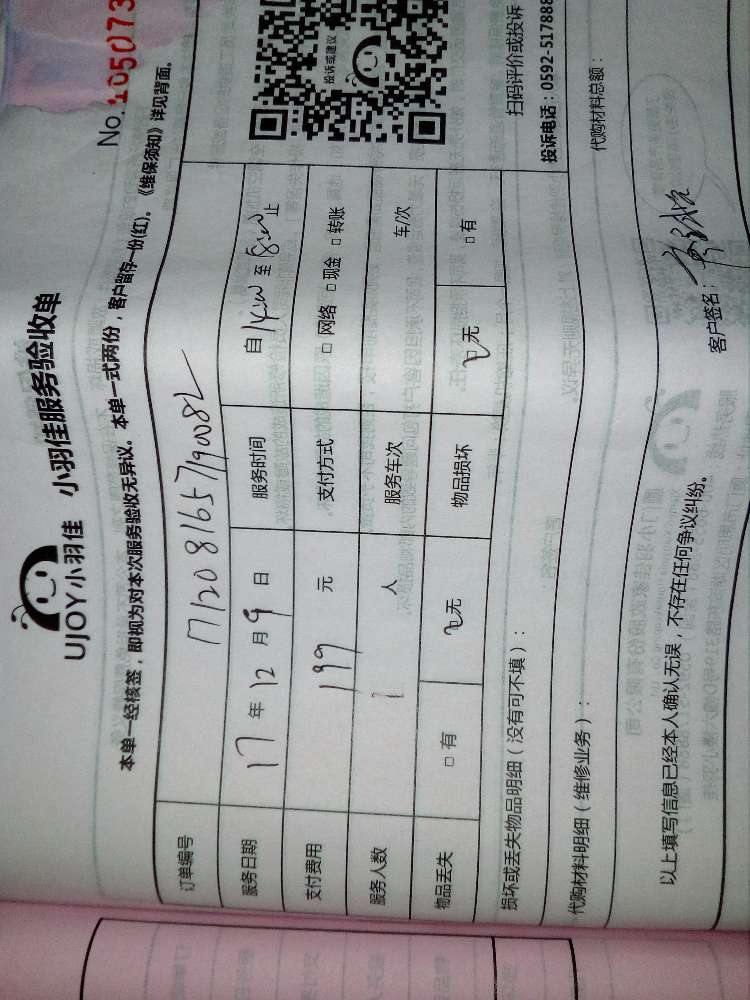 No.105073
UJOY小羽佳 小羽佳服务验收单
本单一经核签，即视为对本次服务验收无异议。本单一式两份，客户留存一份(红)。《维保须知》详见背面。
订单编号 1712081657190082
服务日期 17 年 12 月 9 日 服务时间 自 14:00 至 18:00 止
支付费用 199 元 支付方式 □ 网络 □ 现金 □ 转账
服务人数 1 人 服务车次 车/次
物品丢失 □ 有 无 物品损坏 无 □ 有
投诉或建议
扫码评价或投诉
投诉电话：0592-517888
损坏或丢失物品明细（没有可不填）：
代购材料明细（维修业务）： 代购材料总额：
以上填写信息已经本人确认无误，不存在任何争议纠纷。 客户签名：